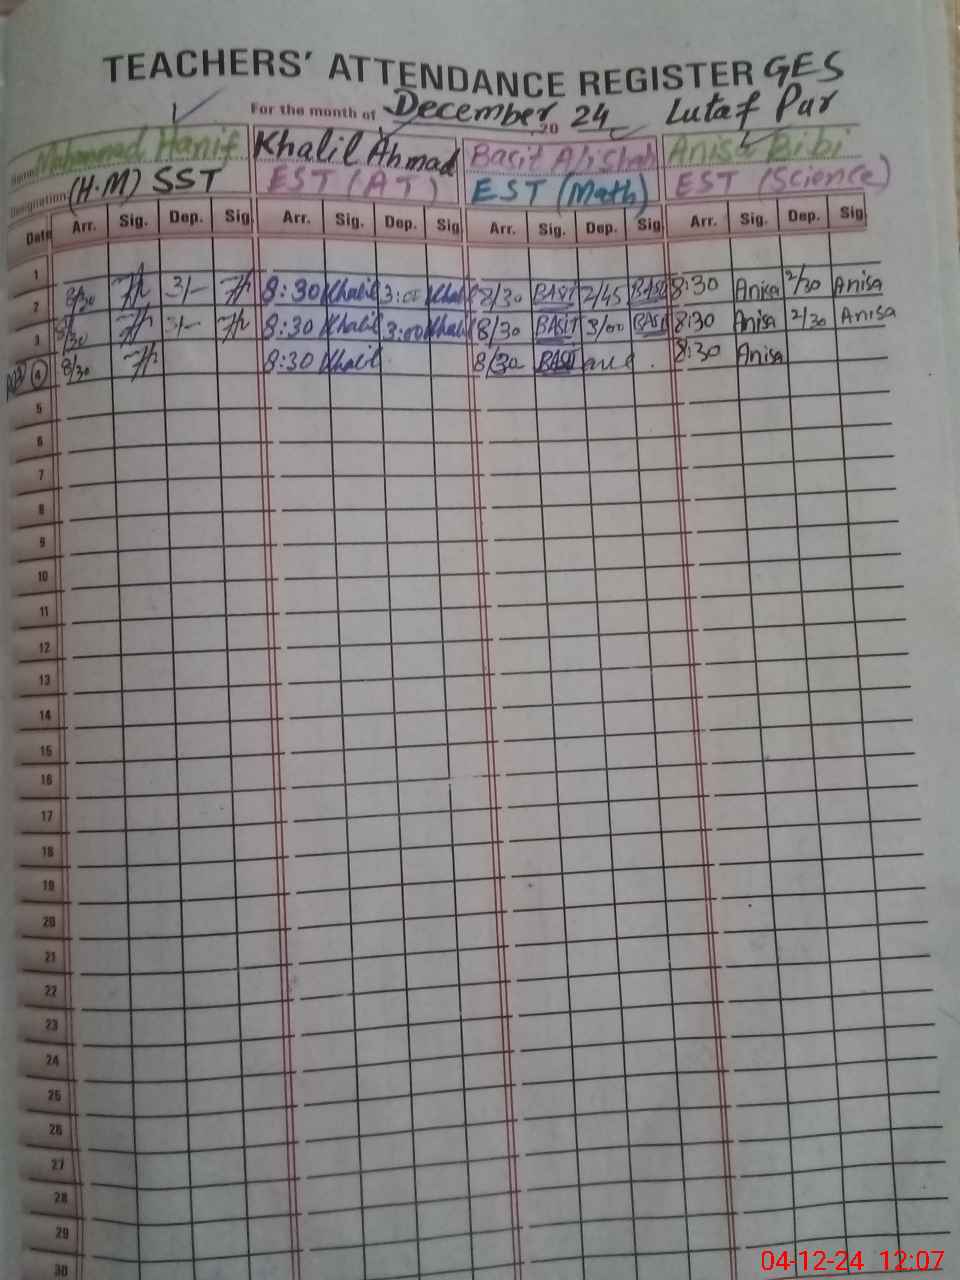 TEACHERS' ATTENDANCE REGISTER GES
For the month of December 2024 Lutaf Pur
Name Mohammad Hanif Khalil Ahmad Basit Ali Shah Anisa Bibi
Designation (H.M) SST EST (AT) EST (Math) EST (Science)
Date Arr. Sig. Dep. Sig. Arr. Sig. Dep. Sig. Arr. Sig. Dep. Sig. Arr. Sig. Dep. Sig.
1
2 8/30 3/- 8:30 Khalil 3:00 Khalil 8/30 BASIT 2/45 BASIT 8:30 Anisa 2/30 Anisa
3 8/30 3/- 8:30 Khalil 3:00 Khalil 8/30 BASIT 3/00 BASIT 8:30 Anisa 2/30 Anisa
4 8/30 8:30 Khalil 8/30 BASIT 8:30 Anisa
5
6
7
8
9
10
11
12
13
14
15
16
17
18
19
20
21
22
23
24
25
26
27
28
29
30
04-12-24 12:07